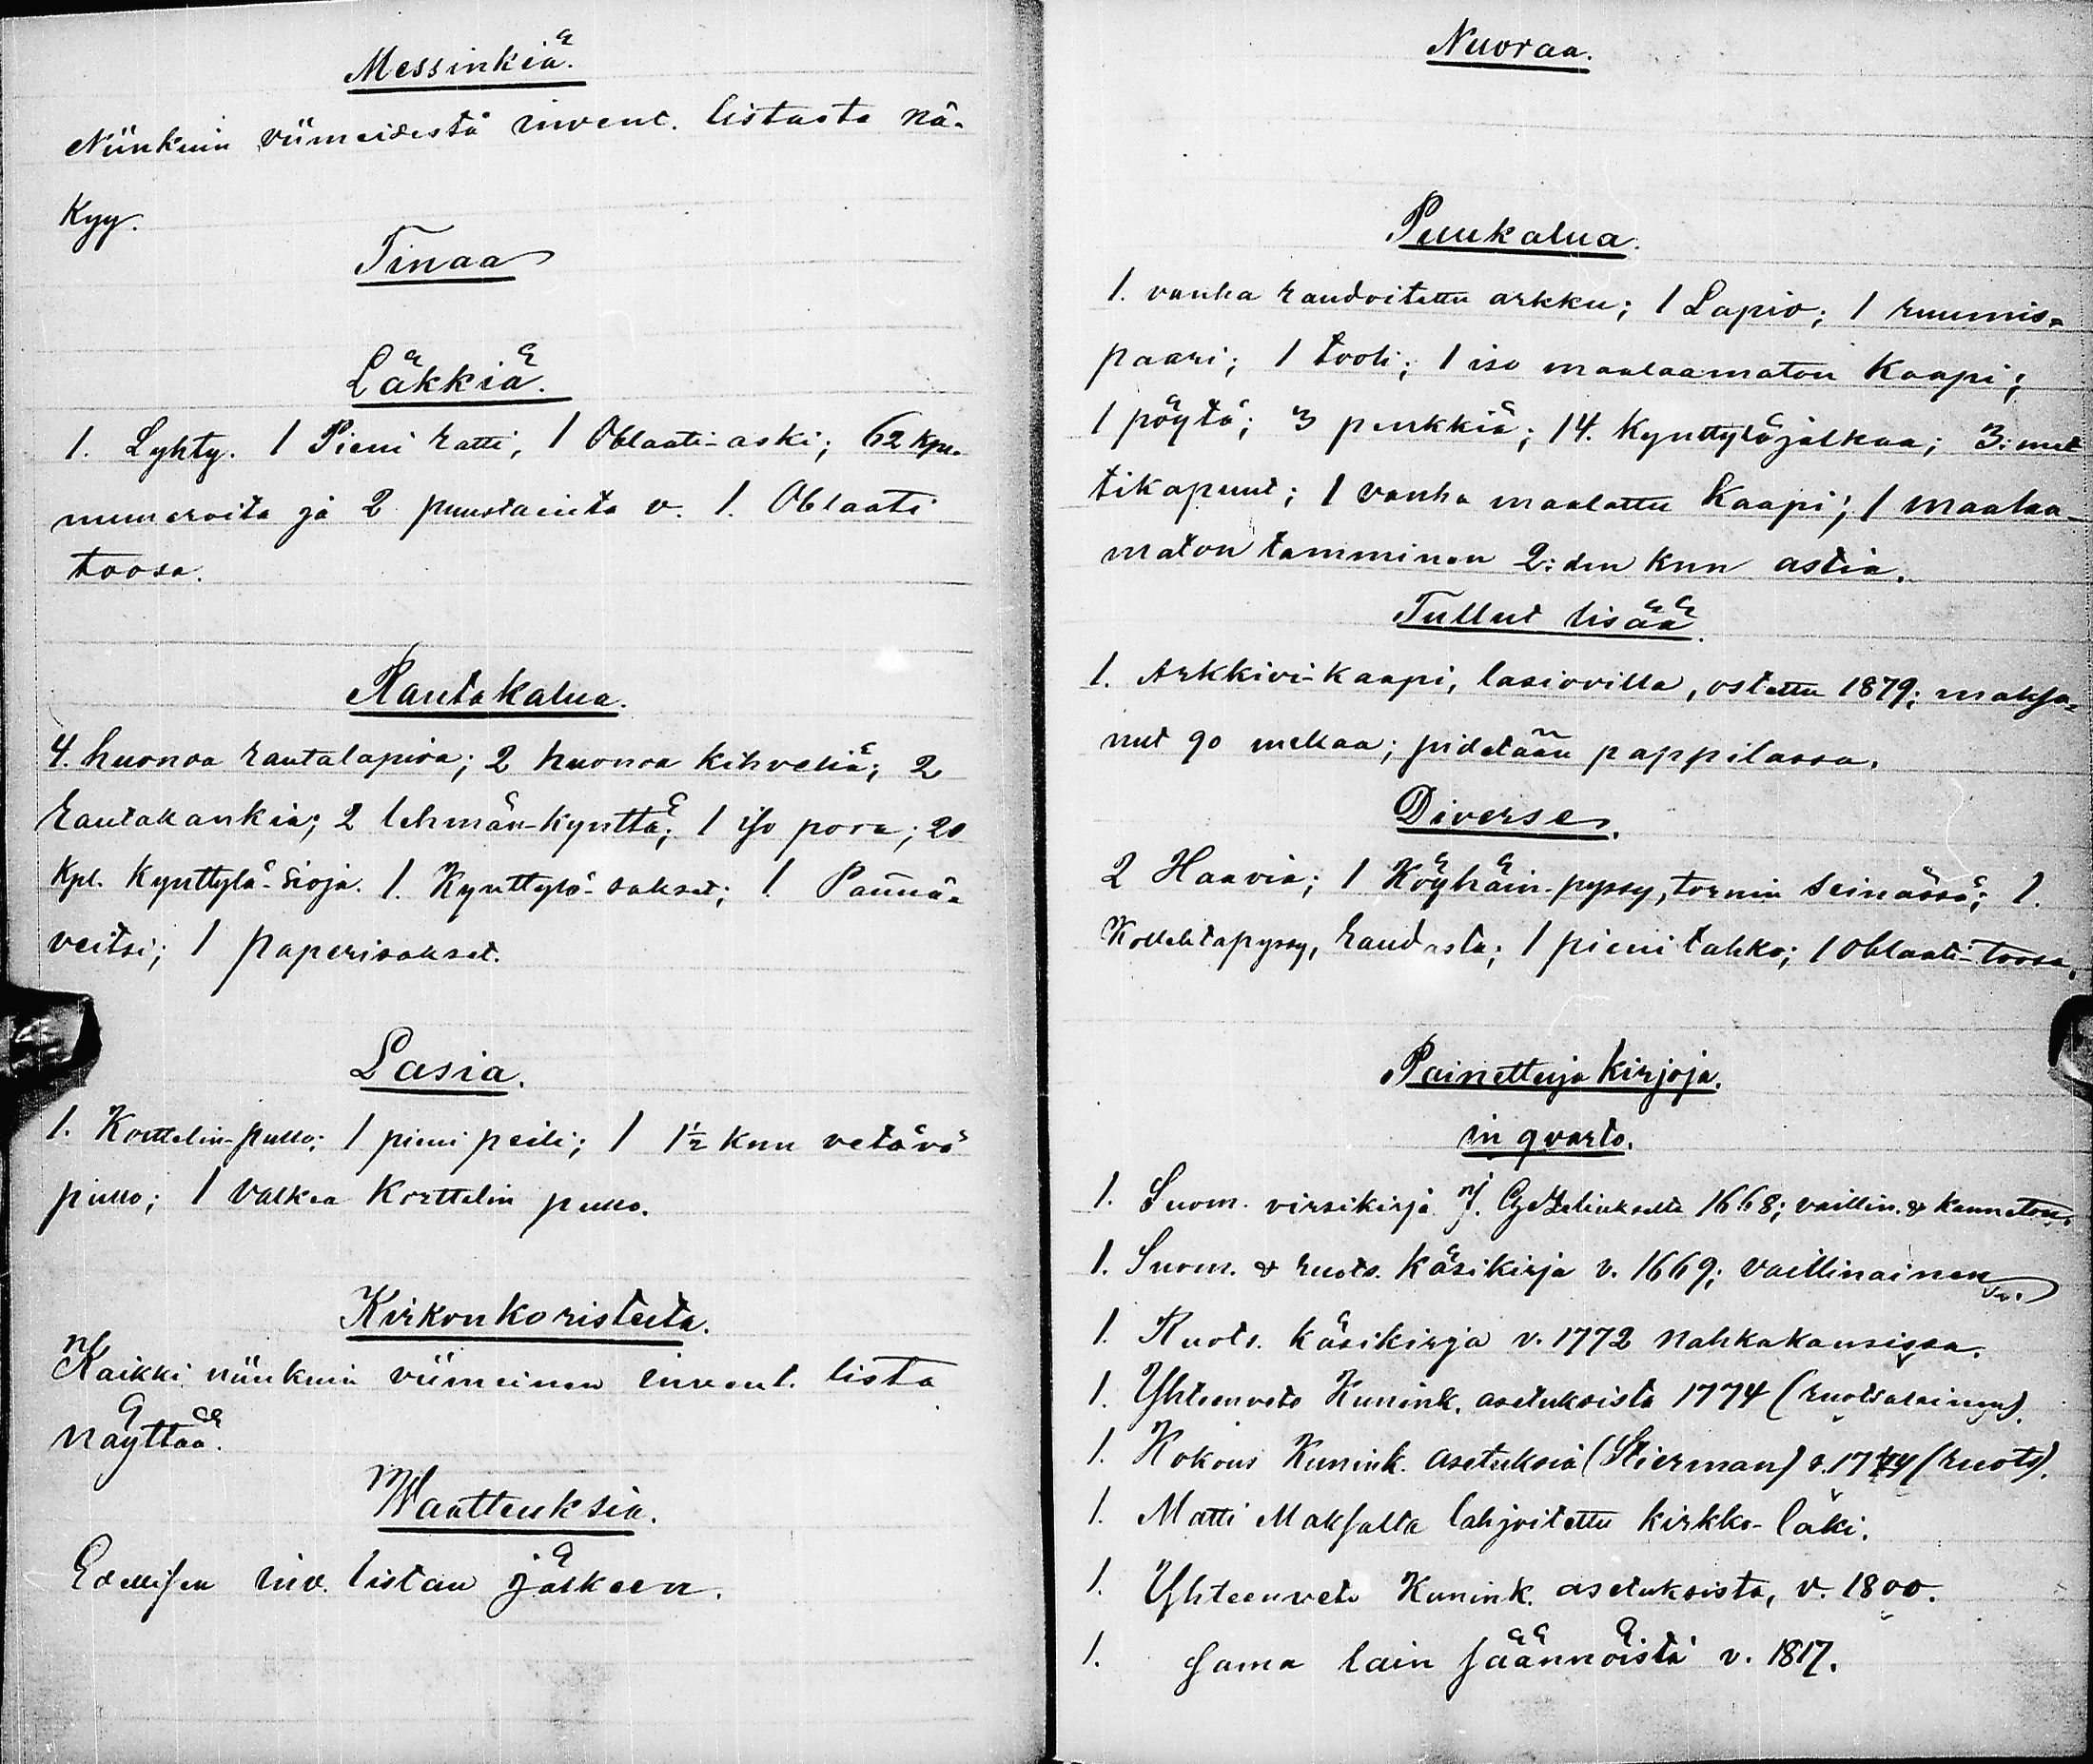 Messinkiä.
Niinkuin viimeisestä invent. listasta nä-
kyy.
Tinaa
Läkkiä.
1. Lyhty. 1 Pieni ratti, 1 Oblaati-aski; 62 kpl.
numeroita ja 2 puustainta v. 1. Oblaati
toosa.
Rautakalua.
4. huonoa rautalapioa; 2 huonoa kihveliä; 2
rautakankia; 2 lehmän-kynttä; 1 iso pora; 20
kpl. kynttylä-sioja. 1. Kynttylä-sakset; 1 Pännä-
veitsi; 1 paperisakset.
Lasia.
1. Korttelin-pullo; 1 pieni peili; 1 1½ knn vetävä
pullo; 1 valkea korttelin pullo.
Kirkonkoristeita.
Kaikki niinkuin viimeinen invent. lista
näyttää.
Waatteuksia.
Edellisen inv. listan jälkeen.
Nuoraa.
Puukalua.
1. vanha raudoitettu arkku; 1 Lapio; 1 ruumis-
paari; 1 tooli; 1 iso maalaamaton kaapi;
1 pöytä; 3 penkkiä; 14. kynttyläjalkaa; 3:met
tikapuut; 1 vanha maalattu kaapi; 1 maalaa-
maton tamminen 2:den knn astia.
Tullut lisää.
1. Arkkivi-kaapi, lasiovilla, ostettu 1879; maksa-
nut 90 mkaa; pidetään pappilassa.
Diverse.
2 Haavia; 1 Köyhäin-pyssy, tornin seinässä; 1.
Kollehtapyssy, raudasta; 1 pieni tahko; 1 oblaati-toosa.
Painettuja kirjoja.
in qvarto.
1. Suom. virsikirja J. Gezeliukselta 1668; vaillin. & kanneton.
1. Suom. & ruots. käsikirja v. 1669; vaillinainen
1. Ruots. käsikirja v. 1772 nahkakansissa.
1. Yhteenveto Kunink. asetuksista 1774 (ruotsalainen).
1. Kokous Kunink. asetuksia (Stierman) v. (ruots).
1. Matti Maksalta lahjoitettu kirkko-laki.
1. Yhteenveto Kunink. asetuksista, v. 1800.
1. Sama lain säännöistä v. 1817.